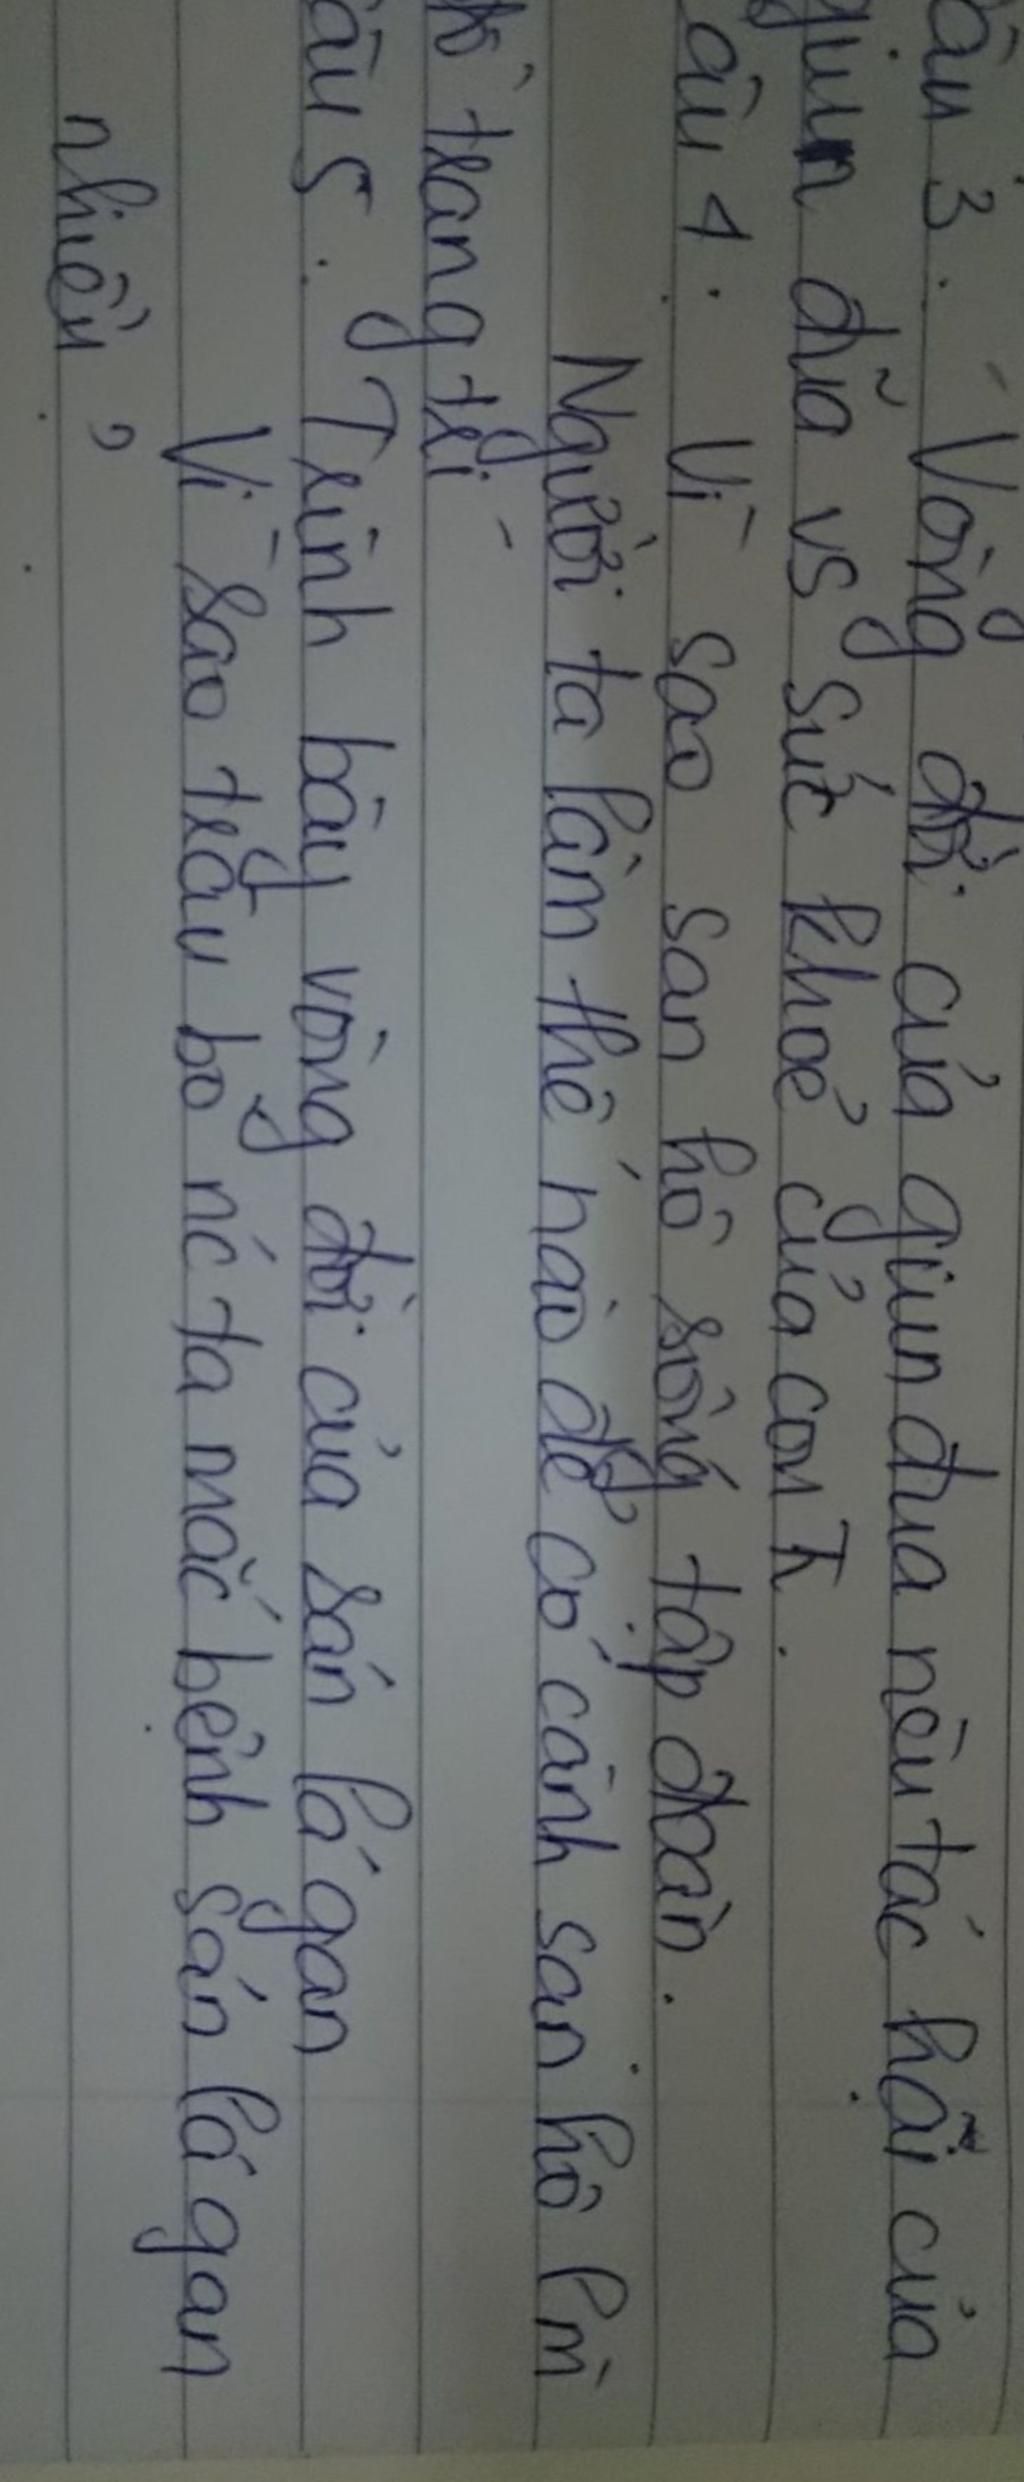 câu 3. Vòng đời của giun đũa nêu tác hại của
giun đũa vs sức khoẻ của con
câu 4. Vì sao san hô sống tập đoàn.
Người ta làm thế nào để có cành san hô lm
đồ trang trí
câu 5. Trình bày vòng đời của sán lá gan
Vì sao trâu bò nc ta mắc bệnh sán lá gan
nhiều ?